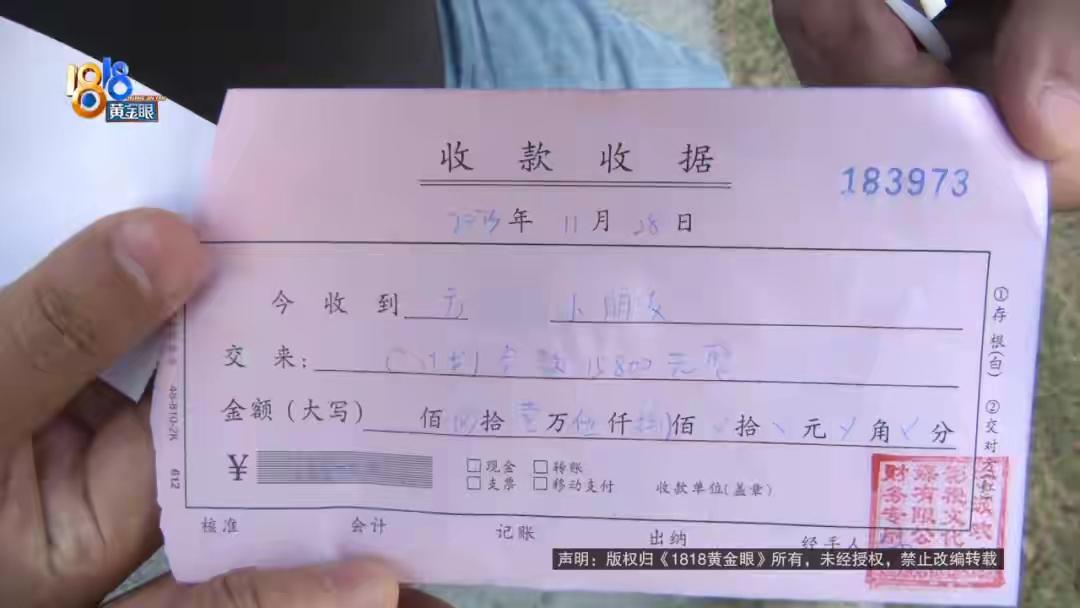 1818
黄金眼
收款收据
183973
年 11 月 28 日
今收到 小朋友
交来: 15800元
金额(大写) 佰 拾 壹 万 伍 仟 捌 佰 拾 元 角 分
¥ □现金 □转账
□支票 □移动支付 收款单位(盖章)
核准 会计 记账 出纳 经手人
①存根(白) ②交对方(红)
48-8110-2K 612
财务专
有限公
声明:版权归《1818黄金眼》所有,未经授权,禁止改编转载